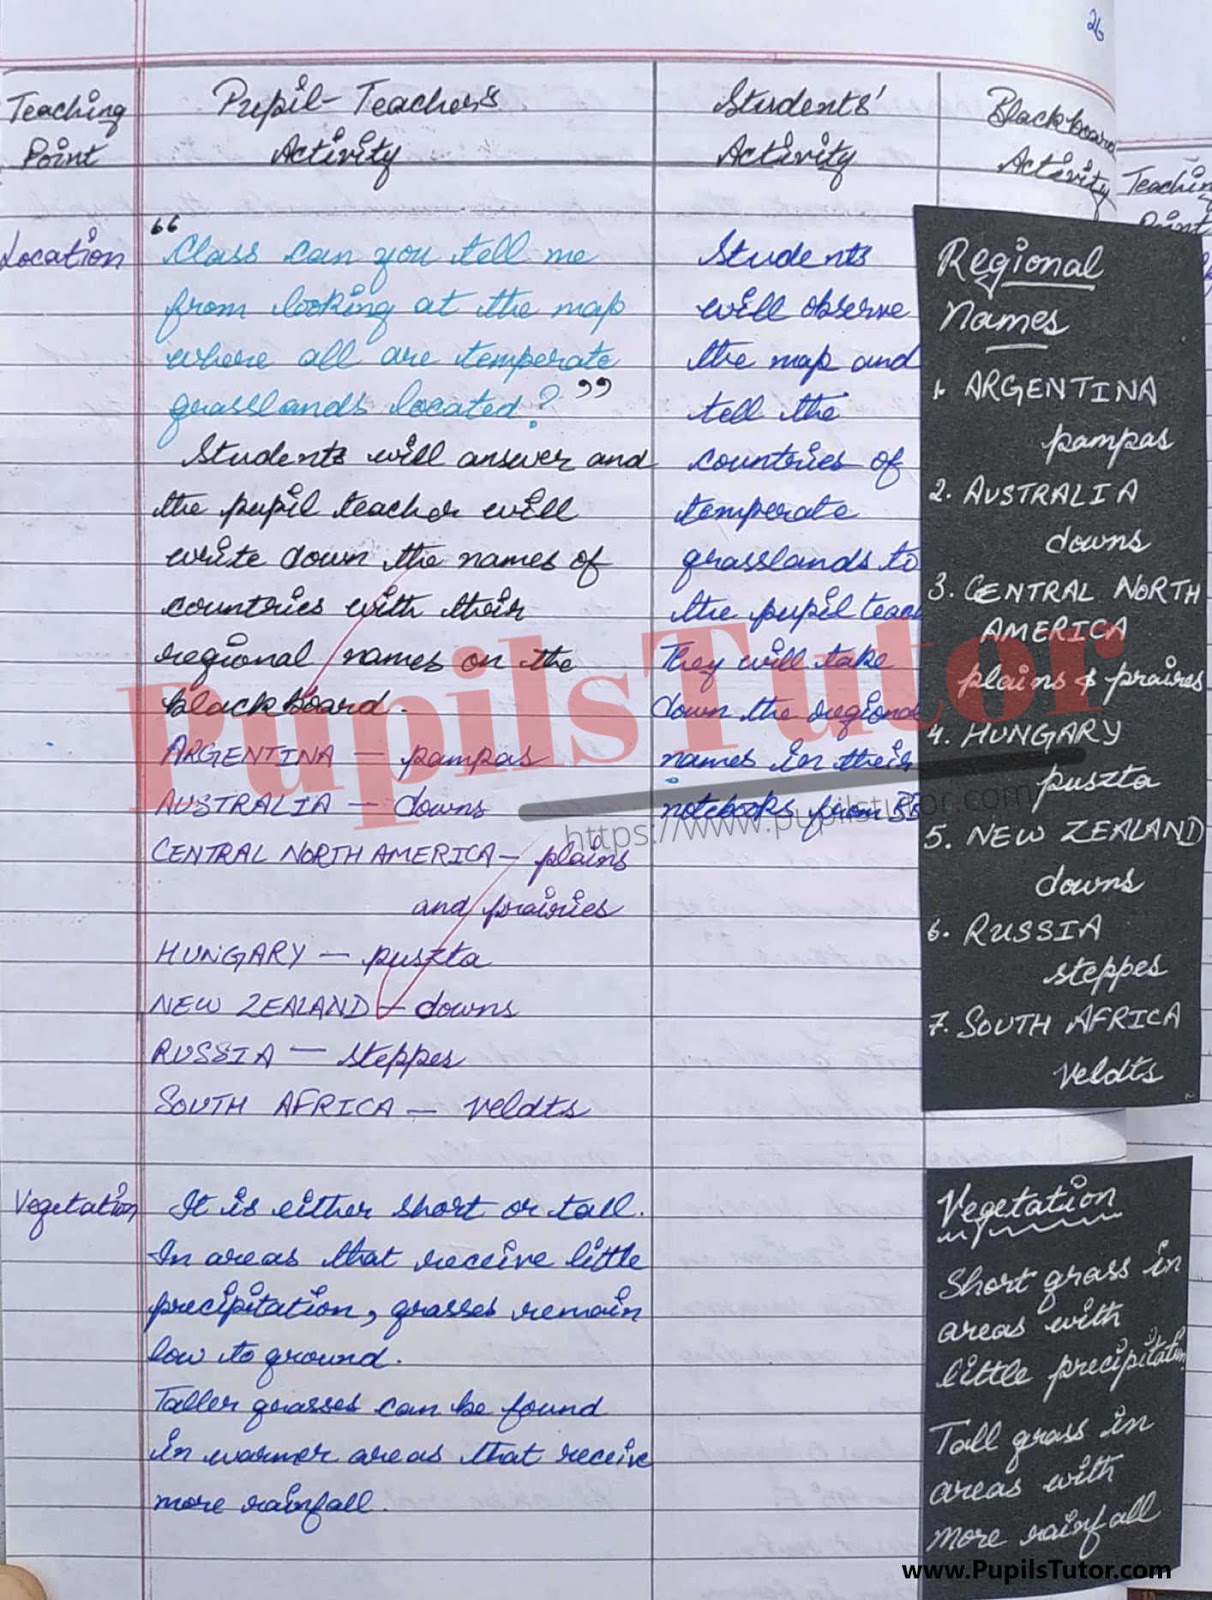 26
Teaching
Point
Pupil-Teachers
Activity
Students'
Activity
Blackboard
Activity
Location
"Class can you tell me
from looking at the map
where all are temperate
grasslands located?"
Students will answer and
the pupil teacher will
write down the names of
countries with their
regional names on the
blackboard.
ARGENTINA — pampas
AUSTRALIA — downs
CENTRAL NORTH AMERICA — plains
and prairies
HUNGARY — puszta
NEW ZEALAND — downs
RUSSIA — steppes
SOUTH AFRICA — veldts
Students
will observe
the map and
tell the
countries of
temperate
grasslands to
the pupil teach
They will take
down the regional
names in their
notebooks from BB
Regional
Names
1. ARGENTINA
pampas
2. AUSTRALIA
downs
3. CENTRAL NORTH
AMERICA
plains & praires
4. HUNGARY
puszta
5. NEW ZEALAND
downs
6. RUSSIA
steppes
7. SOUTH AFRICA
Veldts
Vegetation
It is either short or tall.
In areas that receive little
precipitation, grasses remain
low to ground.
Taller grasses can be found
in warmer areas that receive
more rainfall.
Vegetation
Short grass in
areas with
little precipitation
Tall grass in
areas with
more rainfall
Teachin
Point
PupilsTutor
https://www.pupilstutor.com
www.PupilsTutor.com